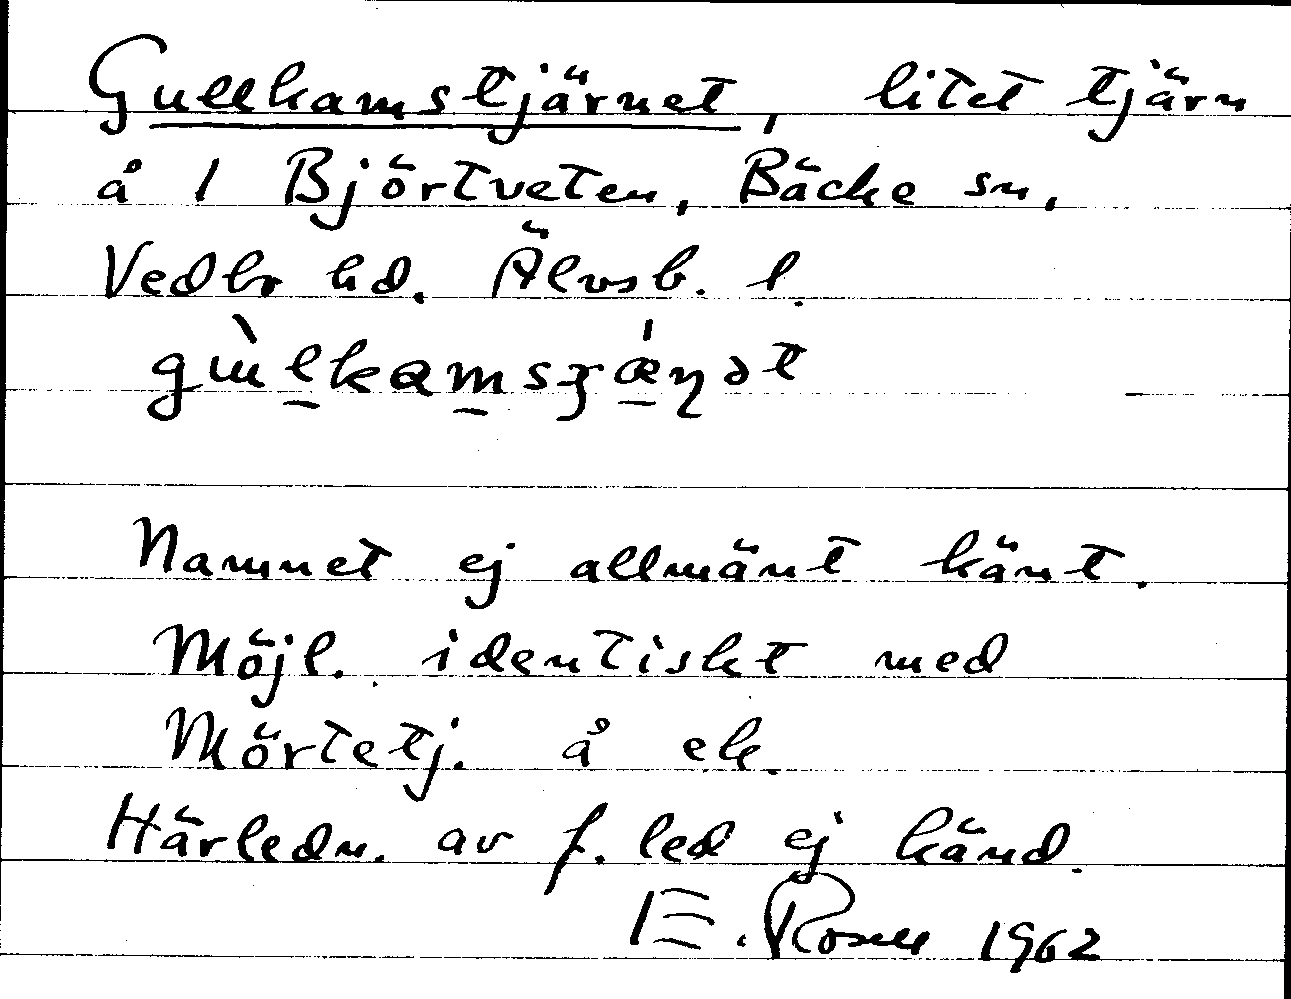 Gullkamstjärnet, litet tjärn
å 1 Björtveten, Bäcke sn,
Vedbo hd. Älvsb. l.
Namnet ej allmänt känt.
Möjl. identiskt med
Mörtetj. å ek.
Härledn. av f. led ej känd.
E. Rosell 1962